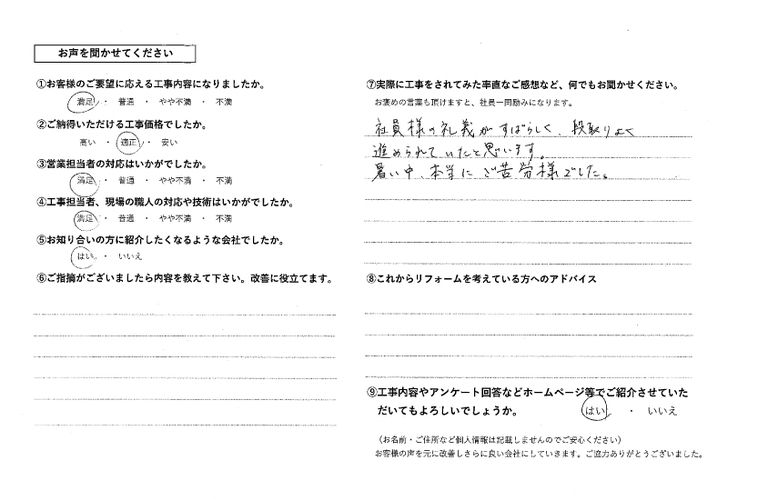 お声を聞かせてください
①お客様のご要望に応える工事内容になりましたか。
満足 ・ 普通 ・ やや不満 ・ 不満
②ご納得いただける工事価格でしたか。
高い ・ 適正 ・ 安い
③営業担当者の対応はいかがでしたか。
満足 ・ 普通 ・ やや不満 ・ 不満
④工事担当者、現場の職人の対応や技術はいかがでしたか。
満足 ・ 普通 ・ やや不満 ・ 不満
⑤お知り合いの方に紹介したくなるような会社でしたか。
はい ・ いいえ
⑥ご指摘がございましたら内容を教えて下さい。改善に役立てます。
⑦実際に工事をされてみた率直なご感想など、何でもお聞かせください。
お褒めの言葉も頂けますと、社員一同励みになります。
社員様の礼義がすばらしく、段取りよく
進められていたと思います。
暑い中、本当にご苦労様でした。
⑧これからリフォームを考えている方へのアドバイス
⑨工事内容やアンケート回答などホームページ等でご紹介させていた
だいてもよろしいでしょうか。 はい ・ いいえ
（お名前・ご住所など個人情報は記載しませんのでご安心ください）
お客様の声を元に改善しさらに良い会社にしていきます。ご協力ありがとうございました。